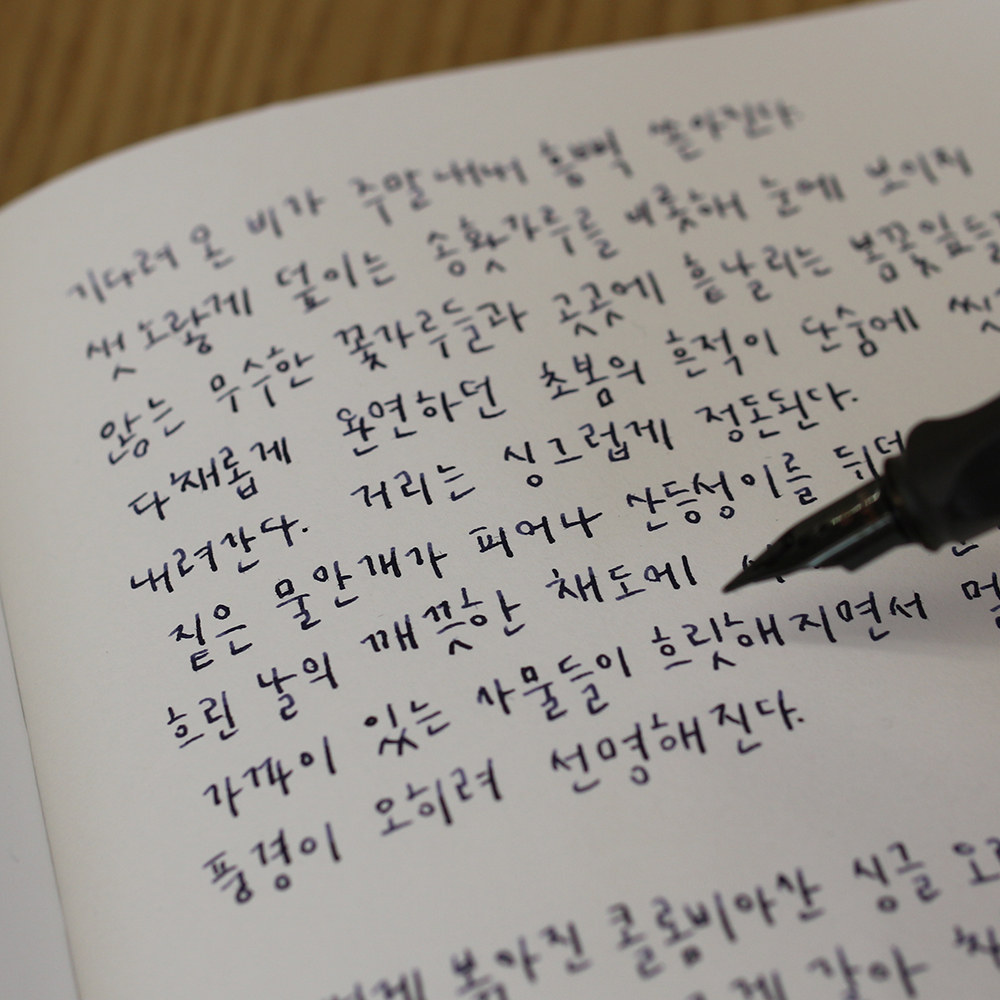 기다려 온 비가 주말내내 흠뻑 쏟아진다.
샛노랗게 덮이는 송홧가루를 비롯해 눈에 보이지
않는 무수한 꽃가루들과 곳곳에 흩날리는 봄꽃잎들
다채롭게 완연하던 초봄의 흔적이 단숨에
내려간다. 거리는 싱그럽게 정돈된다.
짙은 물안개가 피어나 산등성이를
흐린 날의 깨끗한 채도에
가까이 있는 사물들이 흐릿해지면서
풍경이 오히려 선명해진다.
볶아진 콜롬비아산 싱글
갈아